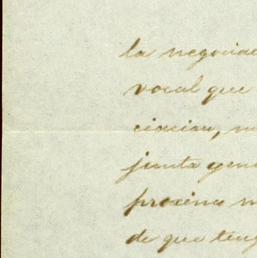 la negocia
vocal que
ciacion, n
junta gene
proximo m
de que teng